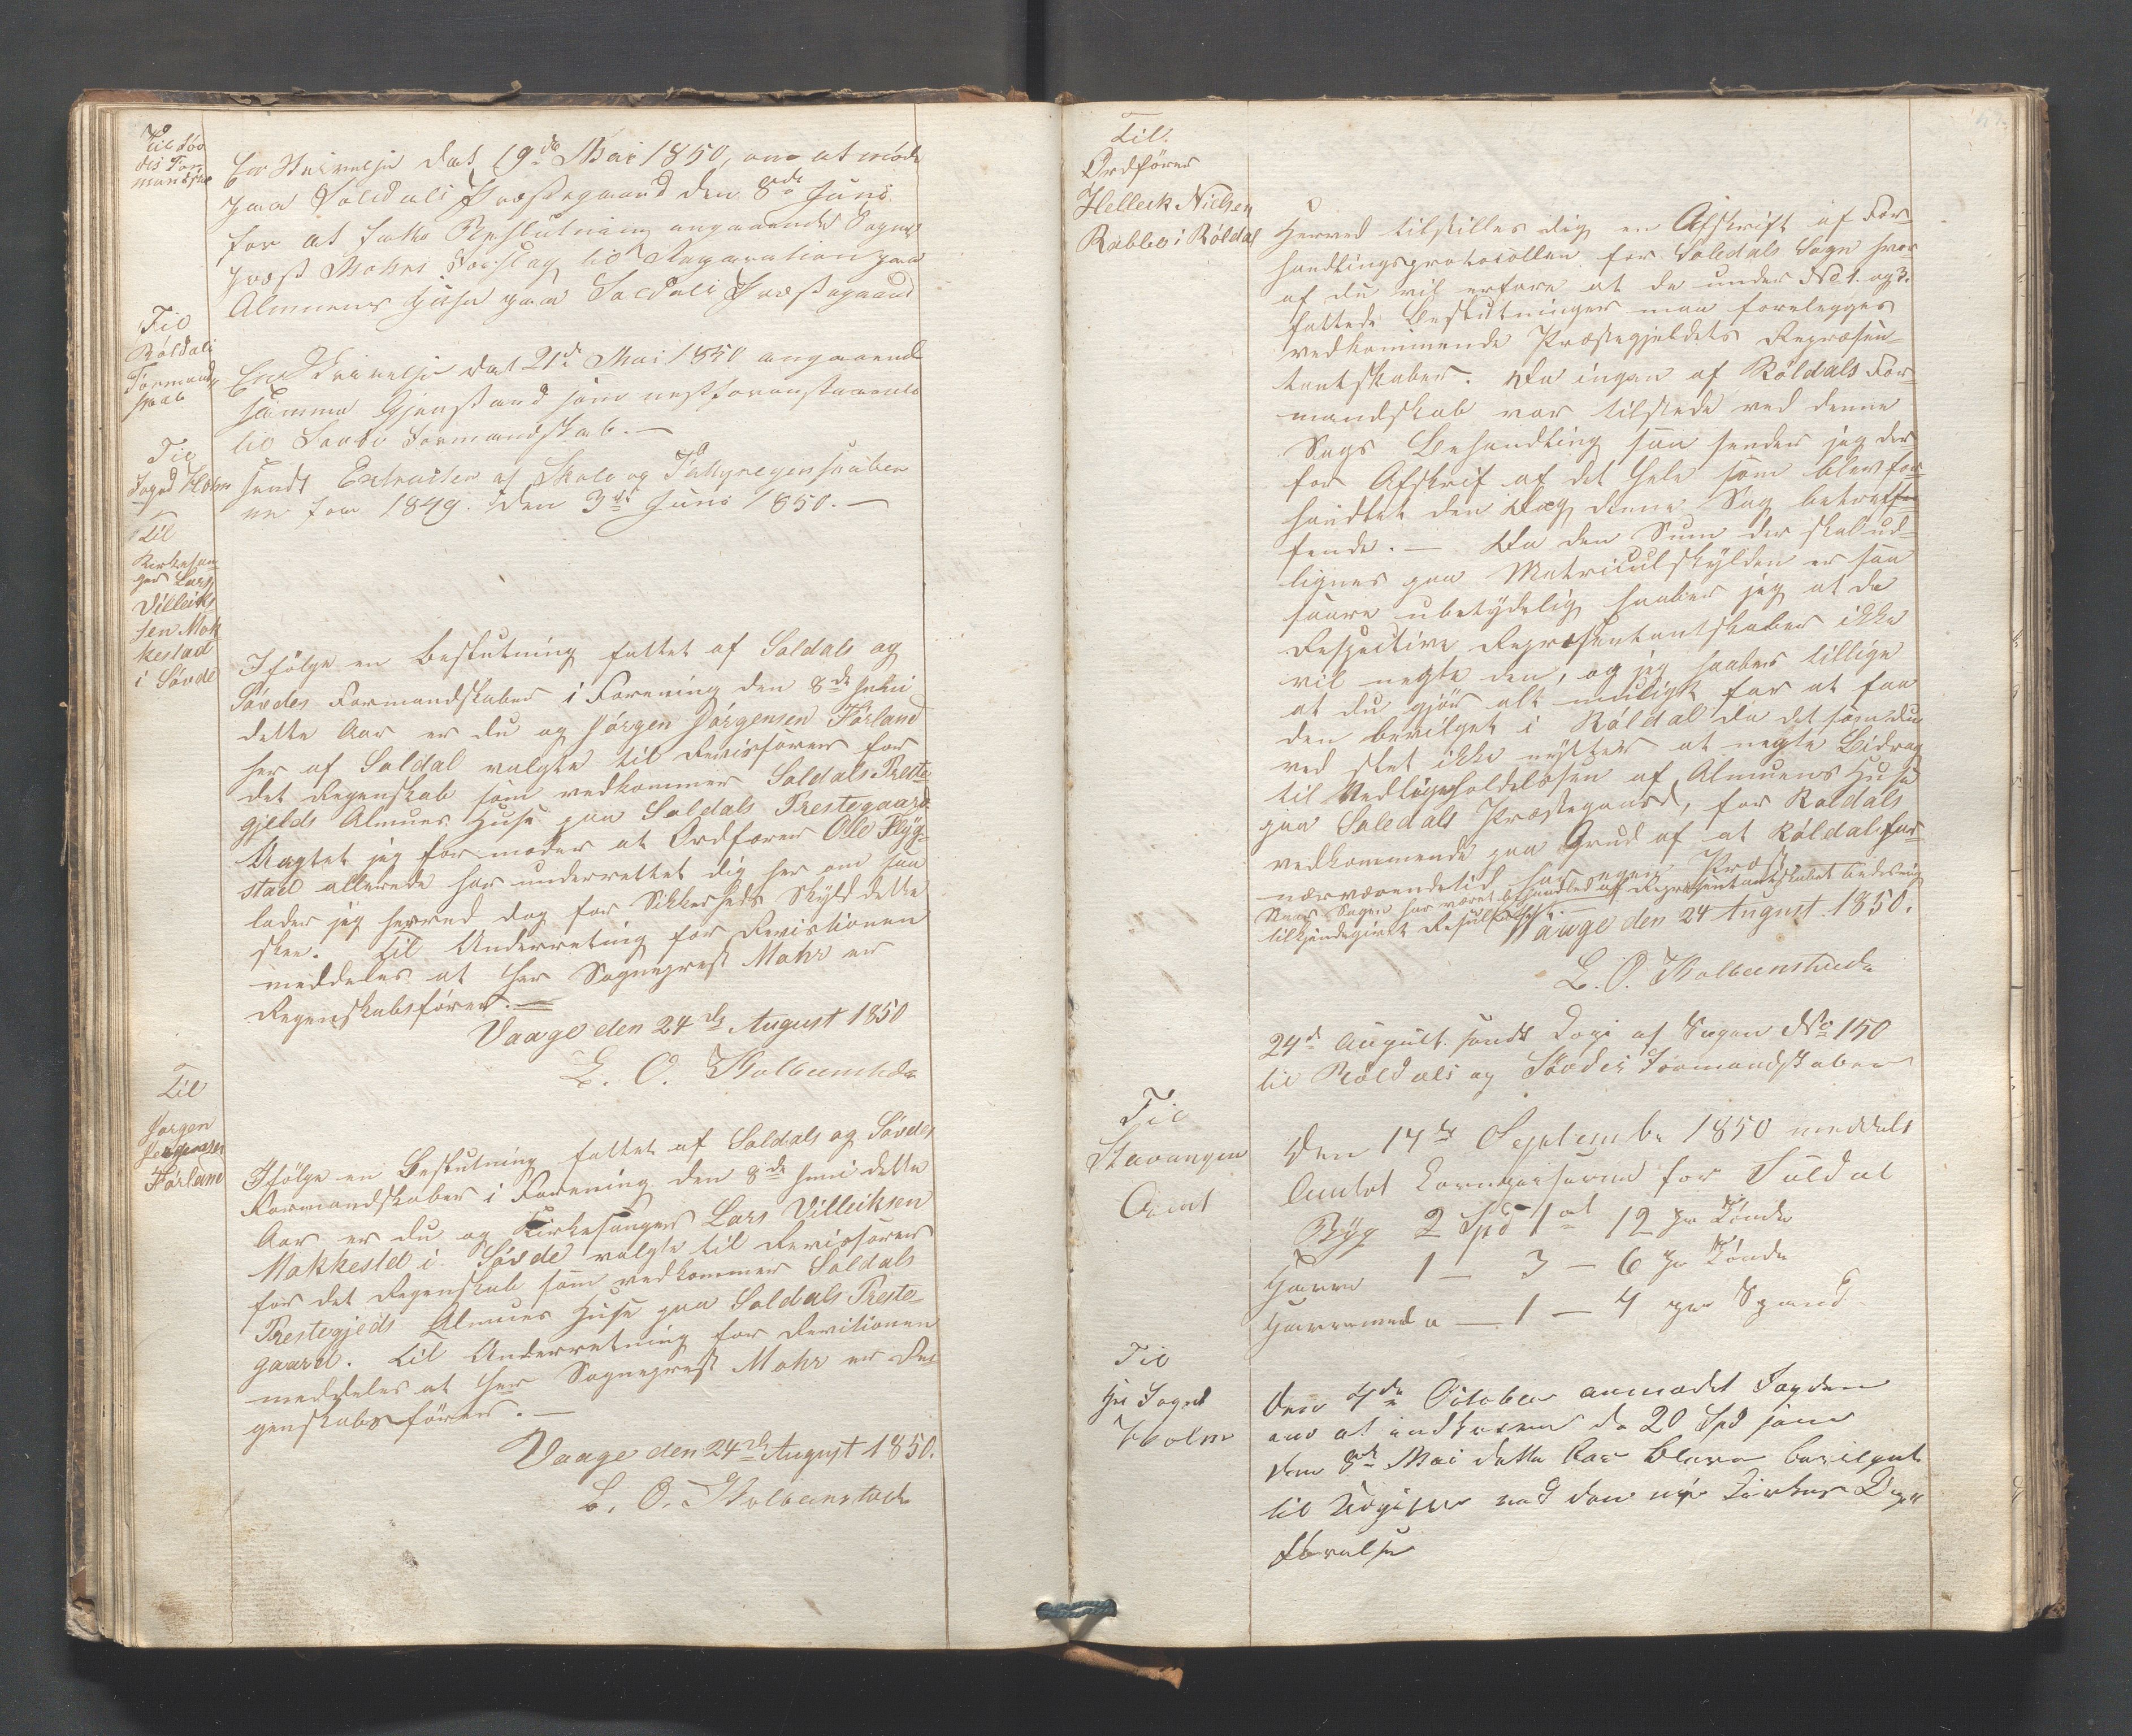 Til Søv
des For
mandskab
En Skrivelse dat 19de Mai 1850, om at møde
paa Soldals Præstegaard den 8de Juni
for at fatte Beslutning angaaende Sogne
præst Mohrs Forslag til Reparation paa
Almuens Huse paa Soldals Præstegaard
Til
Røldals
Formand
skab
En Skrivelse dat 21de Mai 1850 angaaende
samme Gjenstand som nestforanstaaende
til Søvde Formandskab. —
Til
Foged Holm
sendt Extracter af Skole og Fattigregenskaber
ne for 1849. Den 3die Juni 1850. —
Til
Kirkesan
ger Lars
Villeiks
sen Mok
kestad
i Søvde
Ifølge en Beslutning fattet af Soldals og
Søvdes Formandskaber i Forening den 8de Juni
dette Aar er du og Jörgen Jörgensen Förland
her af Soldal valgte til Revisorer for
det Regenskab som vedkommer Soldals Preste
gjelds Almues Huse paa Soldals Prestegaard
Uagtet jeg formoder at Ordforer Olle Flyg-
stad allerede har underrettet dig her om saa
lader jeg herved dog for Sikkerheds Skyld dette
skee. Til Underretning for Revistionen
meddeles at Her Sogneprest Mohr er
Regenskabsfører. —
Vaage den 24de August 1850
L. O. Kolbeinstvedt
Til
Jorgen
Jorgensen
Førland
Ifølge en Beslutning fattet af Soldals og Søvdes
Formandskaber i Forening den 8de Juni dette
Aar er du og Kirkesanger Lars Villeiksen
Mokkested i Søvde valgte til Revisorer
for det Regenskab som vedkommer Soldals
Prestegjeds Almues Huse paa Soldals Preste-
gaard. Til Underretning for Revitionen
meddeles at Her Sogneprest Mohr er Re-
genskabsfører. —
Vaage den 24de August 1850.
L. O. Kolbeinstvedt
Til
Ordfører
Helleik Nielsen
Rabbe i Røldal
Herved tilstilles dig en Afskrift af For-
handlingsprotocollen for Soledals Sogn hvor
af du vil erfare at de under No 1. og 3.
fattede Beslutninger maa forelegges
vedkommende Præstegjeldets Repræsen-
tantskaber. Da ingen af Røldals For-
mandskab var tilstede ved denne
Sags Behandling saa sender jeg der
for Afskrif af det Hele som blev for-
handlet den Dag denne Sag betref-
fende. — Da den Sum der skal ud-
lignes paa Matriculskylden er saa
saare ubetydelig haaber jeg at de
Respective Repræsentantskaber ikke
vil negte den, og jeg haaber tillige
at du gjør alt muligt for at faa
den bevilget i Røldal da det som du
ved slet ikke nytter at negte Bidrag
til Vedligeholdelsen af Almuens Huse
paa Soledals Præstegaard, for Røldals
vedkommende paa Grund af at Røldal for
nærværendetid har egen Præst
Naar Sagen har været behandled af Repræsentantskabet bedes mig
tilkjendegivet Resultatet.
Vaage den 24 August 1850.
L. O. Kolbeinstvedt
24de August. sendt Copi af Sagen No 150
til Røldals og Søvdes Formandskaber
Til
Stavanger
Amt
Den 14de September 1850 meddelt
Amtet Kornpriserne for Suldal
Byg 2 Spd 1 ort 12 pr Tønde
Havre 1 — 3 — 6 pr Tønde
— 1 — 4 pr Spand
Til
Hr Foged
Holm
Den 4de October anmodet Fogden
om at indkræve de 20 Spd som
den 8de Mai dette Aar bleve bevilget
til Udgifter ved den nye Kirkes